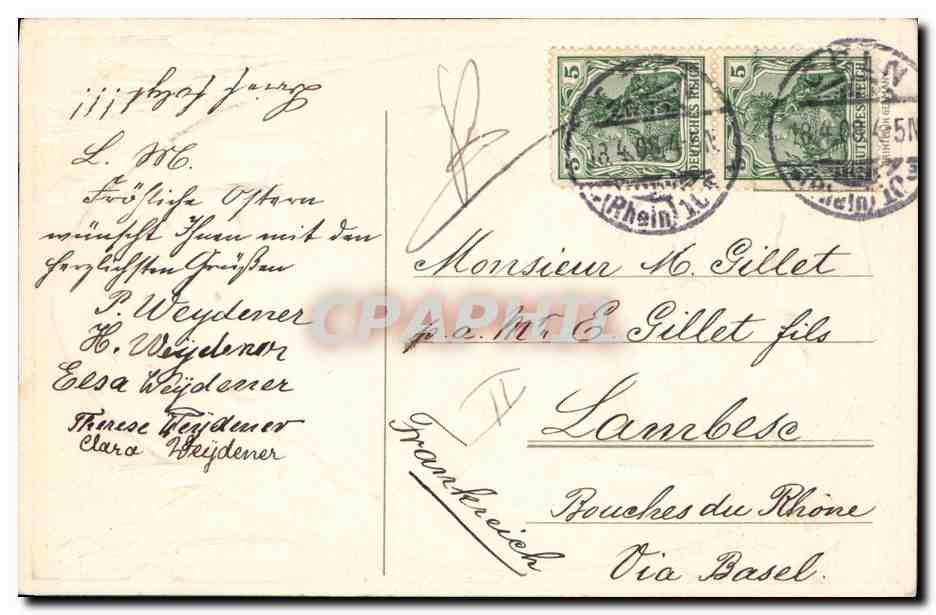 L. M.
Fröhliche Ostern
wünscht Ihnen mit den
herzlichsten Grüßen
P. Weydener
H. Weydener
Elsa Weydener
Therese Weydener
Clara Weydener
5
5
DEUTSCHES REICH
5
5
DEUTSCHES REICH
18.4.08.4-5N
(Rhein) 10
18.4.08.4-5N
(Rhein) 10
Monsieur M. Gillet
p.a. Mr. E. Gillet fils
Lambesc
Bouches du Rhône
Via Basel.
Frankreich
II
CPAPHIL